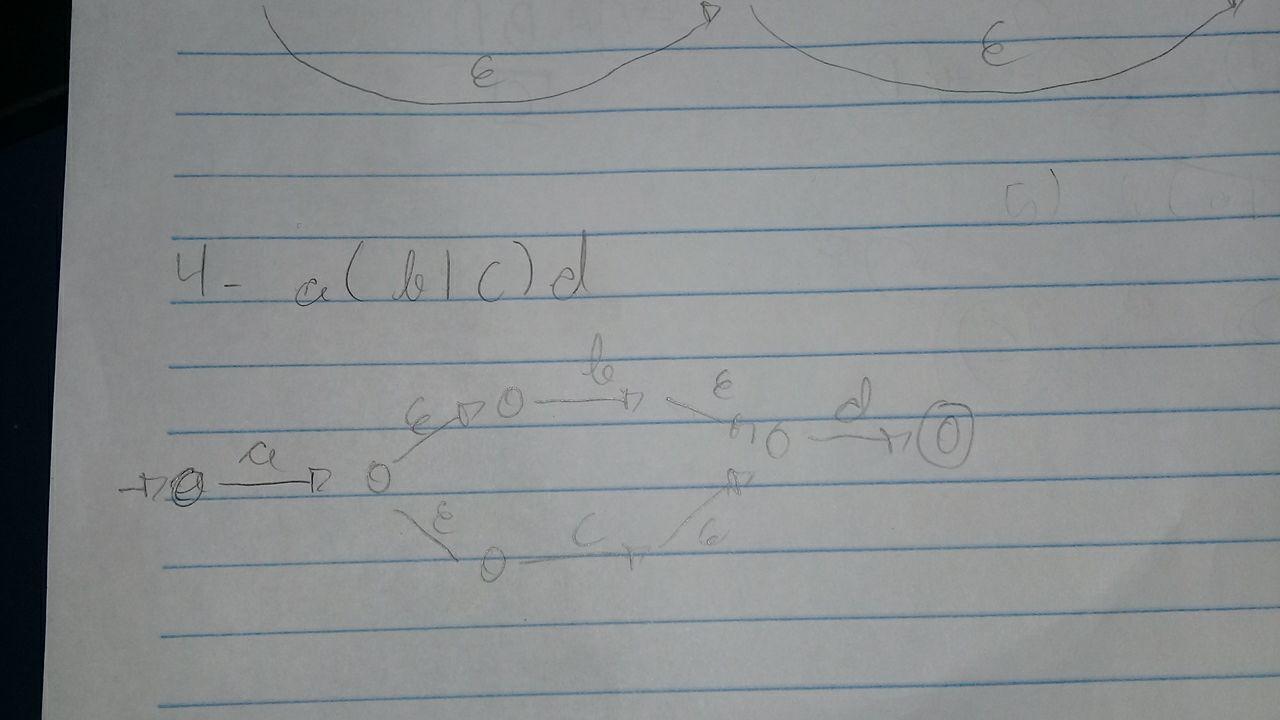 ε ε
5)
4- a(b|c)d
b
ε ε d
a
ε c ε